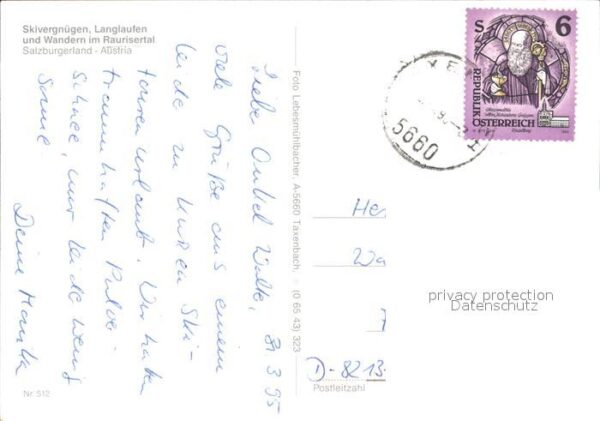 Skivergnügen, Langlaufen
und Wandern im Raurisertal
Salzburgerland - Austria
Liebe Onkel Walter, 31.3.95
viele Grüße aus einem
leider zu kurzen Ski-
tourenurlaub. Wir hatten
traumhaften Pulver-
schnee, nur leider wenig
Sonne
Deine
Nr. 512
Foto Lebesmühlbacher, A-5660 Taxenbach, (0 65 43) 323
5660
S 6
REPUBLIK
ÖSTERREICH
He
Wa
D-8213
Postleitzahl
privacy protection
Datenschutz